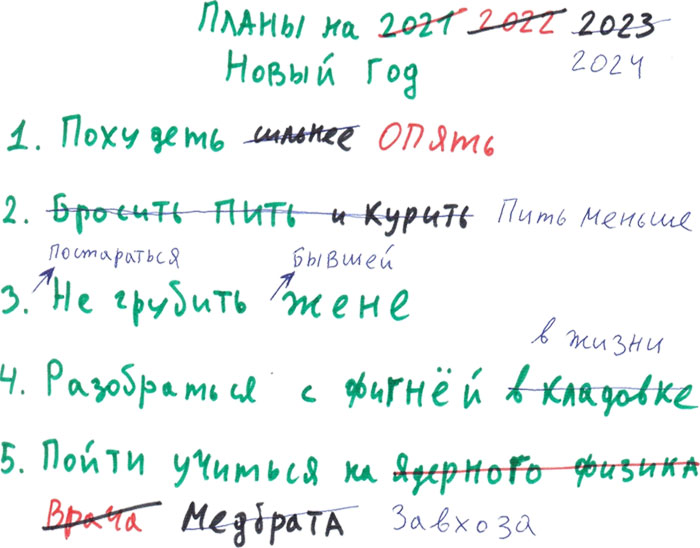 ПЛАНЫ на 2021 2022 2023
Новый год 2024
1. Похудеть сильнее ОПять
2. Бросить ПИТЬ и Курить Пить меньше
постараться бывшей
3. Не грубить жене
в жизни
4. Разобраться с фигнёй в кладовке
5. Пойти учиться на ядерного физика
Врача Медбрата Завхоза